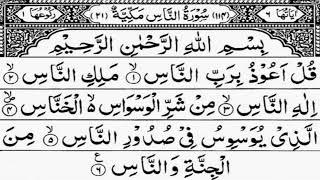 اٰیَاتُهَا ٦ (١١٣) سُوْرَةُ النَّاسِ مَكِّيَّةٌ (٢١) رُكُوْعُهَا ١
بِسْمِ اللهِ الرَّحْمٰنِ الرَّحِيْمِ
قُلْ اَعُوْذُ بِرَبِّ النَّاسِ ۙ ١ مَلِكِ النَّاسِ ۙ ٢
اِلٰهِ النَّاسِ ۙ ٣ مِنْ شَرِّ الْوَسْوَاسِ ۙ الْخَنَّاسِ ۙ ٤
الَّذِيْ يُوَسْوِسُ فِيْ صُدُوْرِ النَّاسِ ۙ ٥ مِنَ
الْجِنَّةِ وَالنَّاسِ ٦ ع